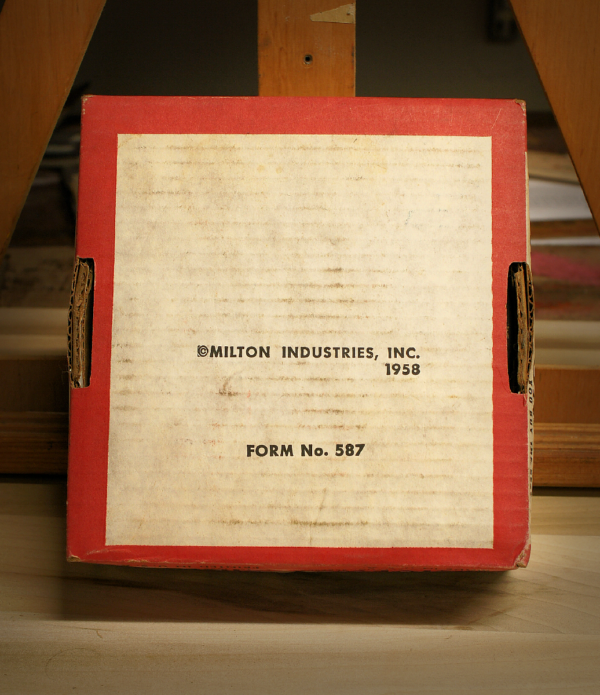 ©MILTON INDUSTRIES, INC.
1958
FORM No. 587